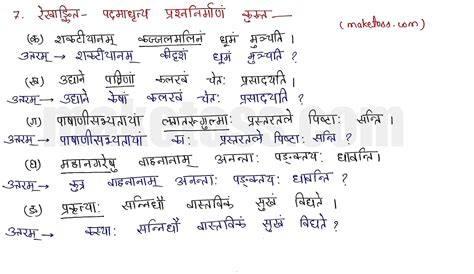 7. रेखाङ्कित- पदमाधृत्य प्रश्ननिर्माणं कुरुत—
(maketoss.com)
(क) शकटीयानम् कज्जलमलिनं धूमं मुञ्चति ।
उत्तरम् → शकटीयानम् कीदृशं धूमं मुञ्चति ?
(ख) उद्याने पक्षिणां कलरवं चेत: प्रसादयति ।
उत्तरम् → उद्याने केषां कलरवं चेत: प्रसादयति ?
(ग) पाषाणीसभ्यतायां लतातरुगुल्मा: प्रस्तरतले पिष्टा: सन्ति ।
उत्तरम् → पाषाणीसभ्यतायां का: प्रस्तरतले पिष्टा: सन्ति ?
(घ) महानगरेषु वाहनानाम् अनन्ता: पङ्क्तय: धावन्ति ।
उत्तरम् → कुत्र वाहनानाम् अनन्ता: पङ्क्तय: धावन्ति ?
(ङ) प्रकृत्या: सन्निधौ वास्तविकं सुखं विद्यते ।
उत्तरम् → कस्या: सन्निधौ वास्तविकं सुखं विद्यते ?
maketoss.com